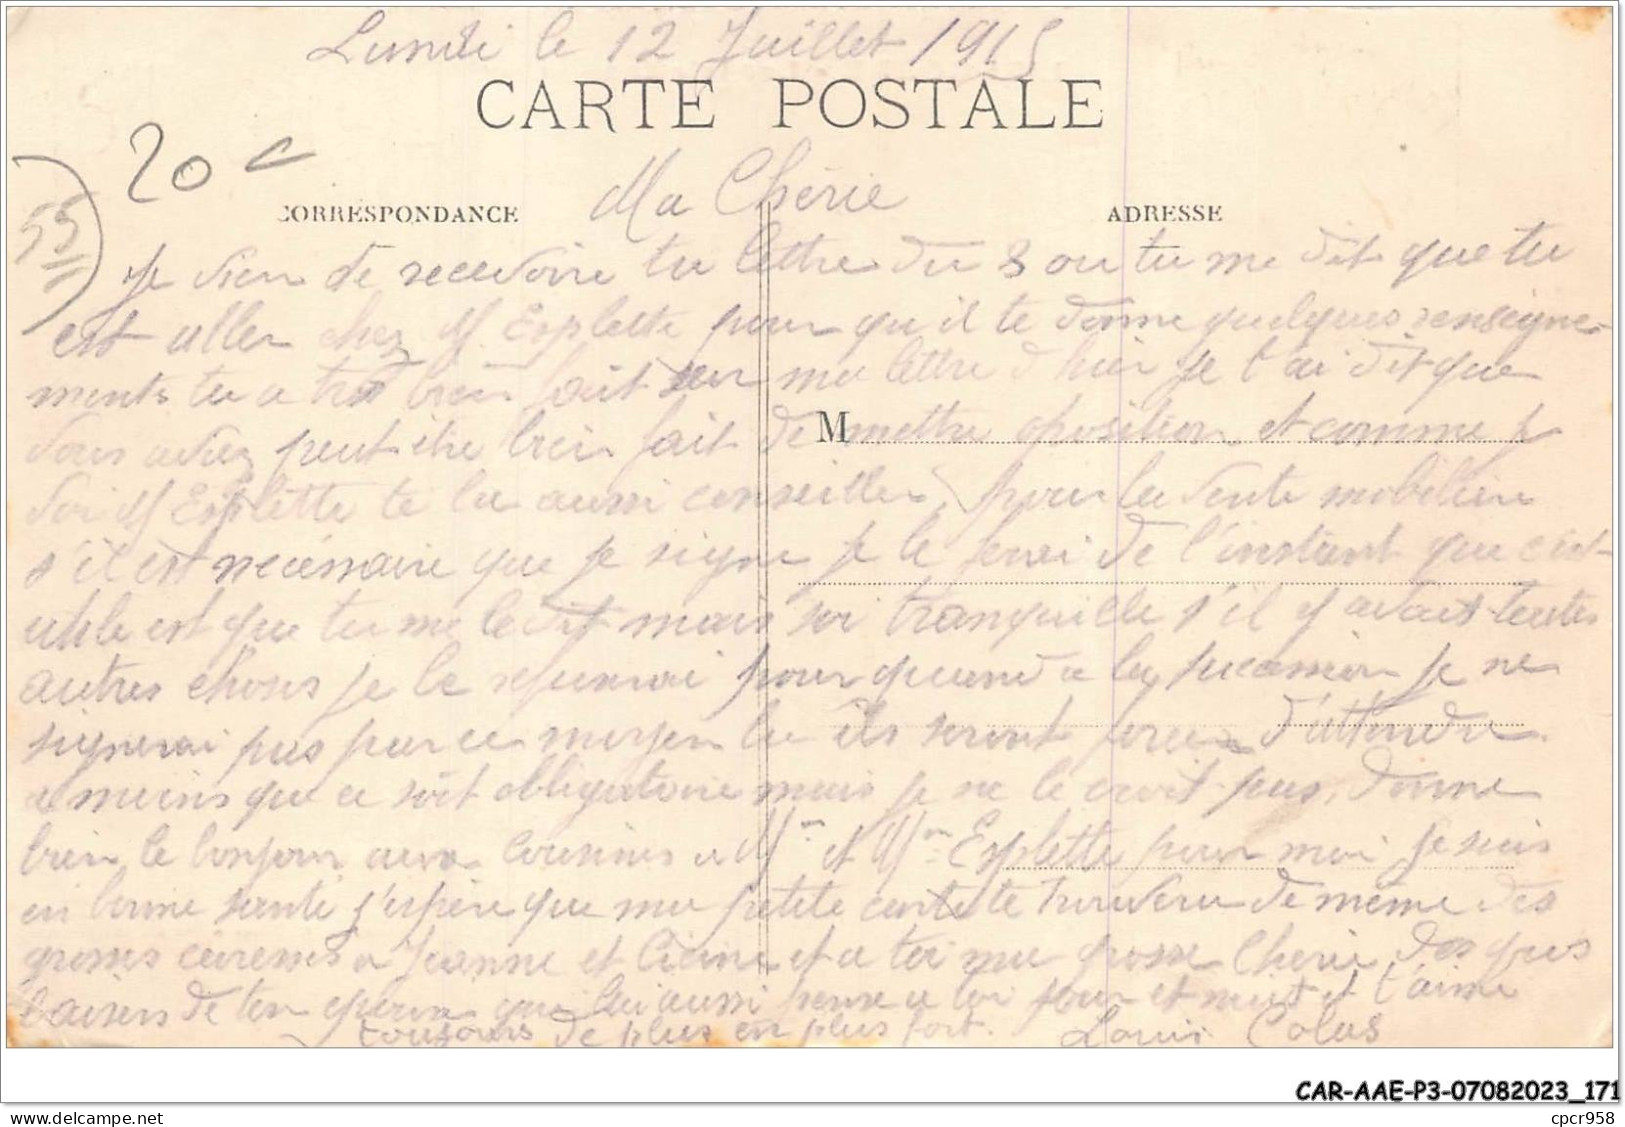 Lundi le 12 Juillet 1915
CARTE POSTALE
20 c
55
CORRESPONDANCE
Ma Chérie
ADRESSE
Je vien de recevoire ta lettre du 8 ou tu me dit que tu
est aller chez M Esplette pour qu il te donne quelques renseigne-
ments tu a très bien fait sur ma lettre d hier je t ai dit que
vous aviez peut être bien fait de mettre oposition et comme je
M
voi M Esplette te la aussi conseiller, pour la vente mobilière
s'il est nécessaire que je signe je le ferai de l'instant que c'est
utile est que tu me le dit mais soi tranquille s'il y avait toutes
autres choses je le refuserai pour quand a la pucession je ne
signerai pas par ce moyen la ils seront forcer d'attendre
a moins que ce soit obligatoire mais je ne le croit pas, donne
bien le bonjour aux cousines a Mr et Mme Esplette pour moi je suis
en bonne santé j'espère que ma petite carte te trouvera de même des
grosses caresses a Jeanne et et a toi ma grosse Cherie des gros
baisers de ton que lui aussi pense a toi jour et nuit et t'aime
toujours de plus en plus fort. Louis Colas
CAR-AAE-P3-07082023_171
cpcr958